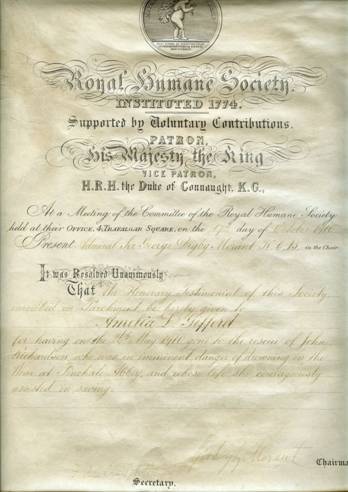 Royal Humane Society.
INSTITUTED 1774.
Supported by Voluntary Contributions.
PATRON,
His Majesty the King
VICE PATRON,
H.R.H. the Duke of Connaught, K.G.,
At a Meeting of the Committee of the Royal Humane Society
held at their OFFICE, 4, TRAFALGAR SQUARE, on the day of October
Present Admiral Sir George Digby Morant K.C.B. in the Chair
It was Resolved Unanimously
That The Honorary Testimonial of this Society
inscribed on Parchment be hereby given to
Amelia L.
for having on the May went to the rescue of John
Richardson who was in imminent danger of drowning in the
Wear at Finchale Abbey, and whose life she courageously
assisted in saving.
Digby Morant
Chairma
Secretary.